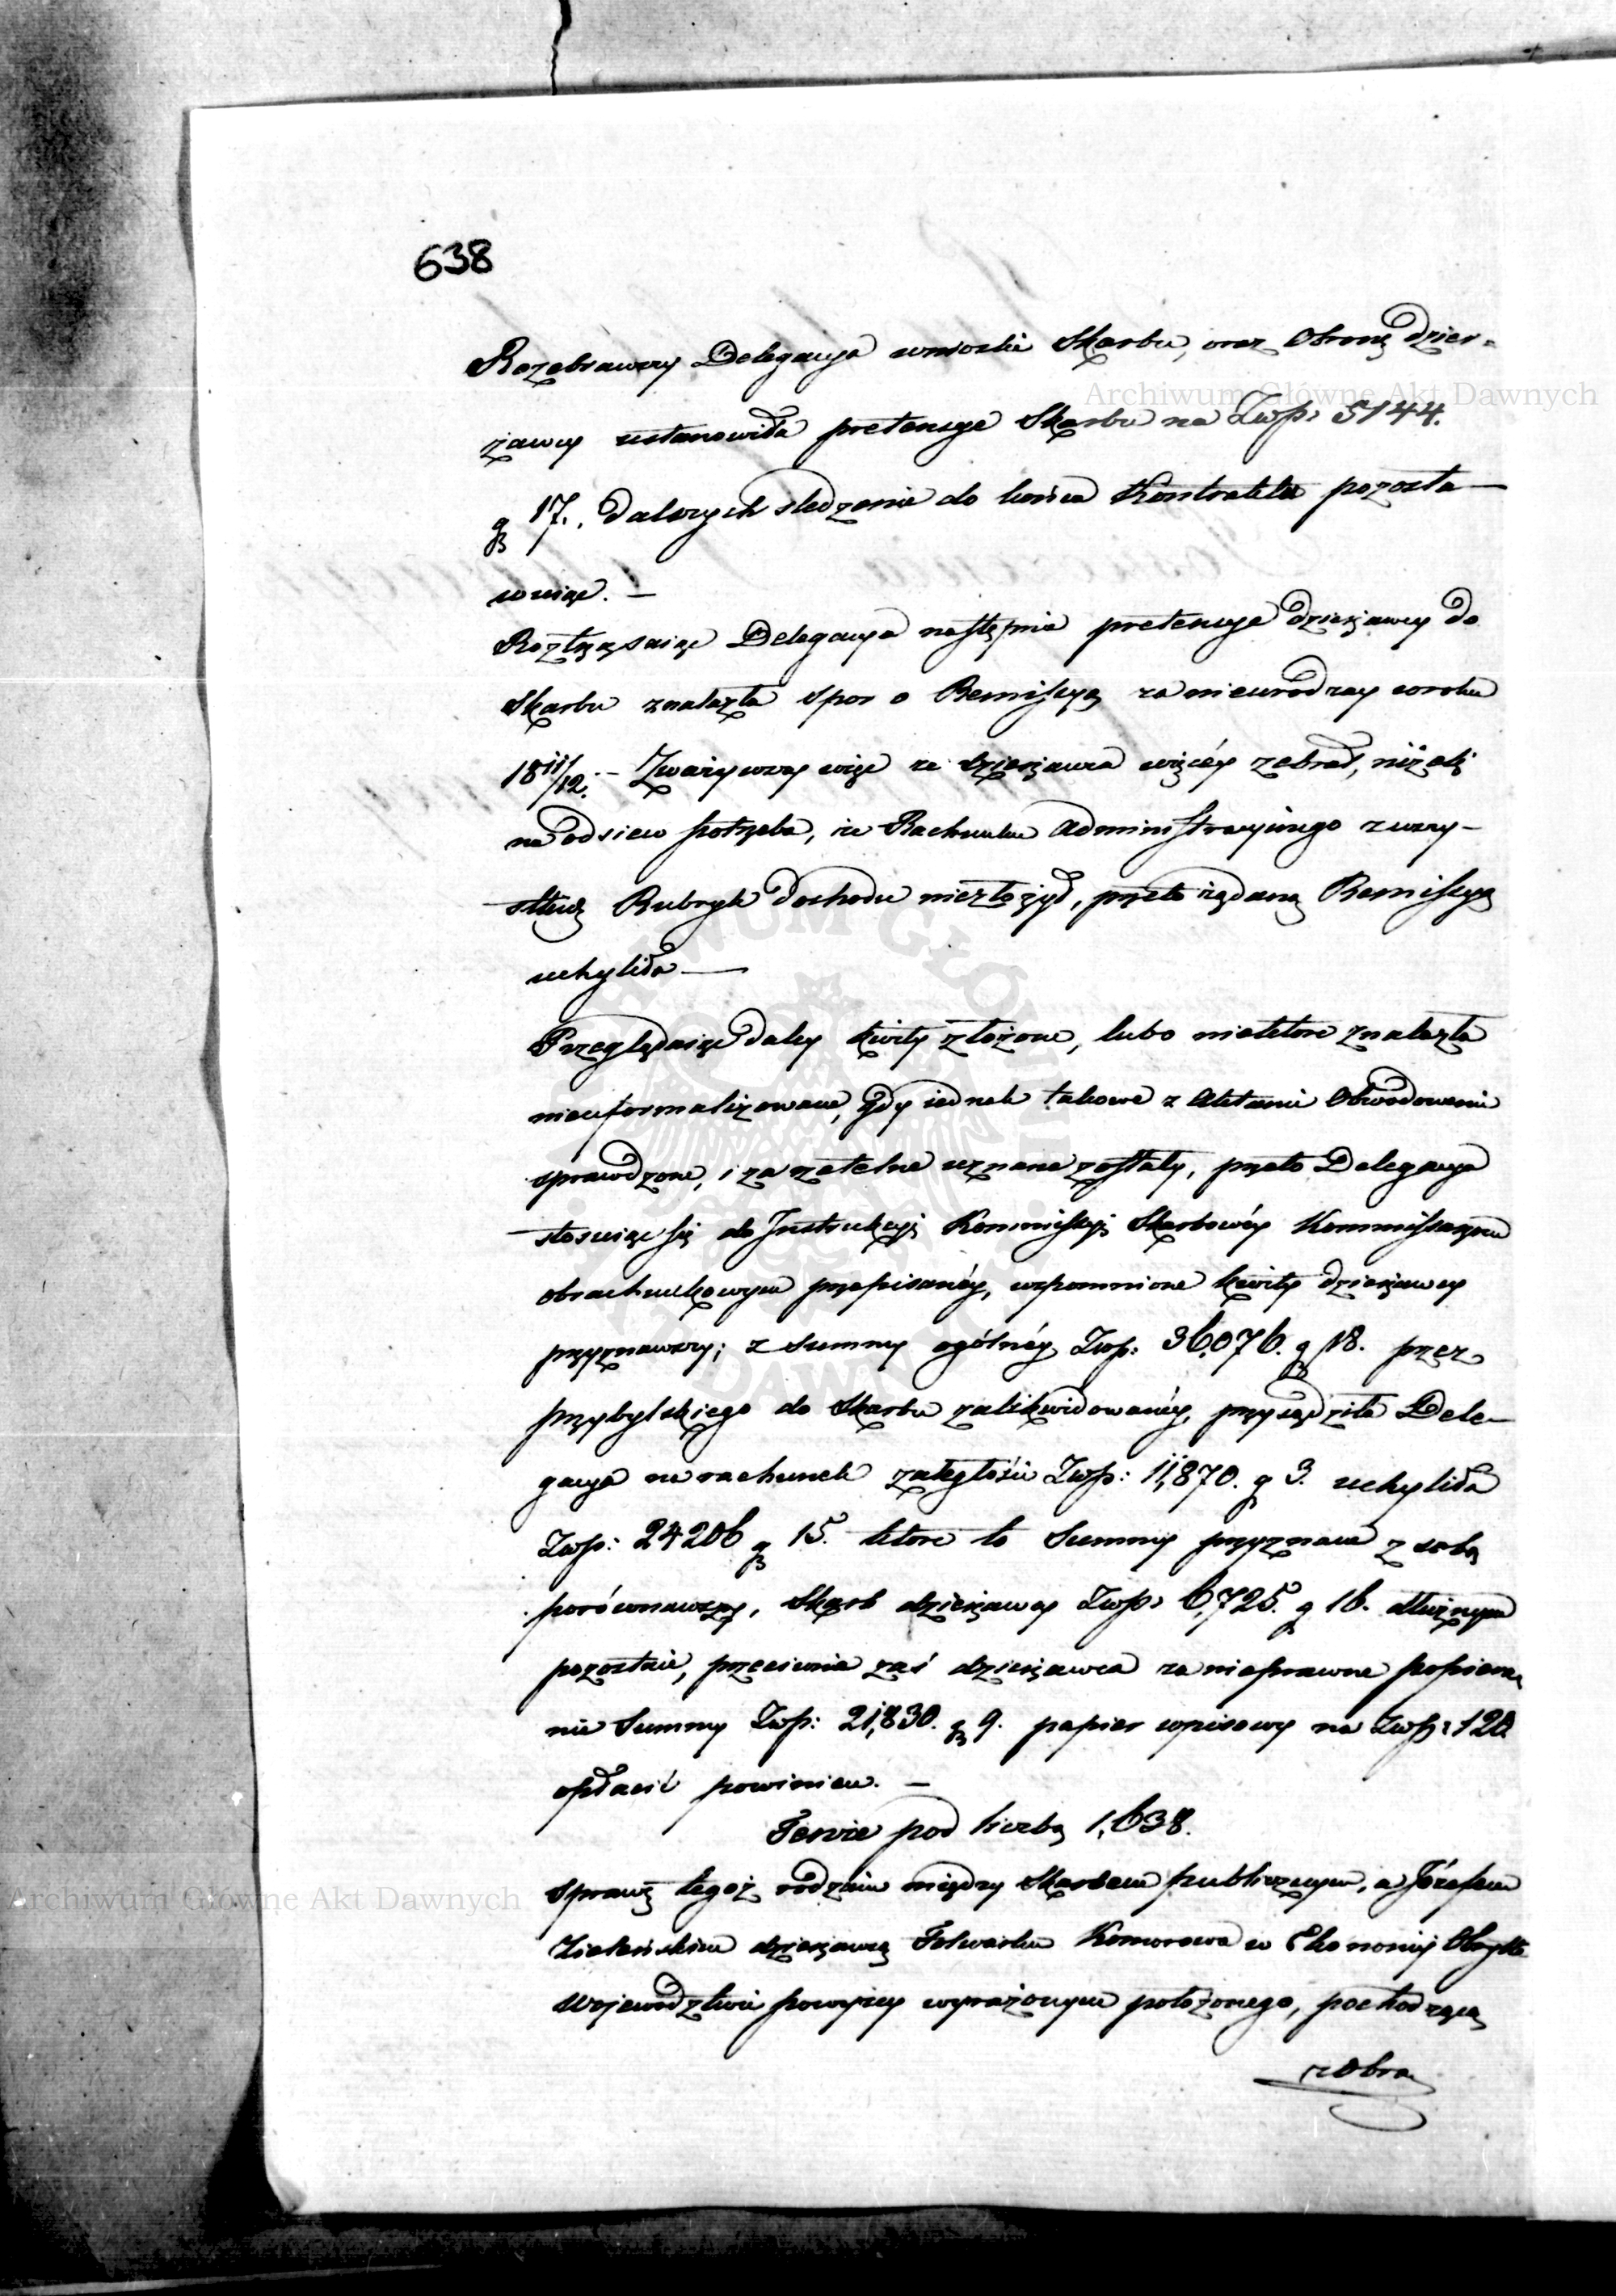 638
Rozebrawszy Delegacya wnioski Skarbu, oraz Obronę dzier=
żawcy ustanowiła pretensye Skarbu na Złwp: 5144.
g 17., dalszych śledzenie do końca Kontraktu pozosta—
wuiąc. —
Roztrząsaiąc Delegacya następnie pretensye dzierżawcy do
Skarbu znalazła Spor o Remissyą za nieurodzay w roku
18 11/12. – Zważywszy więc że dzierżawca więcéy zebrał, niżeli
na odsiew potrzeba, że Rachunku Administracyinego z wszy–
stkich Rubryk dochodu niezłożył, przeto żądaną Remissyą
uchyliła —
Przeglądaiąc daley kwity złożone, lubo niektóre znalazła
nieuformalizowane, gdy iednak takowe z Aktami Obwodowemi
sprawdzone, i za rzetelne uznane zostały, przeto Delegacya
stosuiąc się do Instrukcyi Kommissyi Skarbowéy Kommissarzom
obrachunkowym przepisanéy, wspomnione kwity dzierżawcy
przyznawszy; z Summy ogólnéy Złwp: 36,076. g 18. przez
Przybylskiego do Skarbu zalikwidowanéy, przysądziła Dele—
gacya na rachunek zaległości Złwp: 11,870. g 3. uchyliła
Złwp: 24206 g 15. które to Summy przyznane z sobą
porównawszy, Skarb dzierżawcy Złwp: 6,725. g 16. dłużnym
pozostaie, przeciwnie zaś dzierżawca za nieprawne popiera
nie Summy Złwp: 21,830. g 9. papier wpisowy na Złwp: 120
opłacić powinien. —
Tenże pod liczbą 1,638.
Sprawę tegoż rodzaiu między Skarbem publicznym, a Józefem
Zieleńskim dzierżawcą Folwarku Komorowa w Ekonomii Obryte
Województwie powyżey wyrażonym położonego, pochodzącą
z Obra
Archiwum Główne Akt Dawnych
Archiwum Główne Akt Dawnych